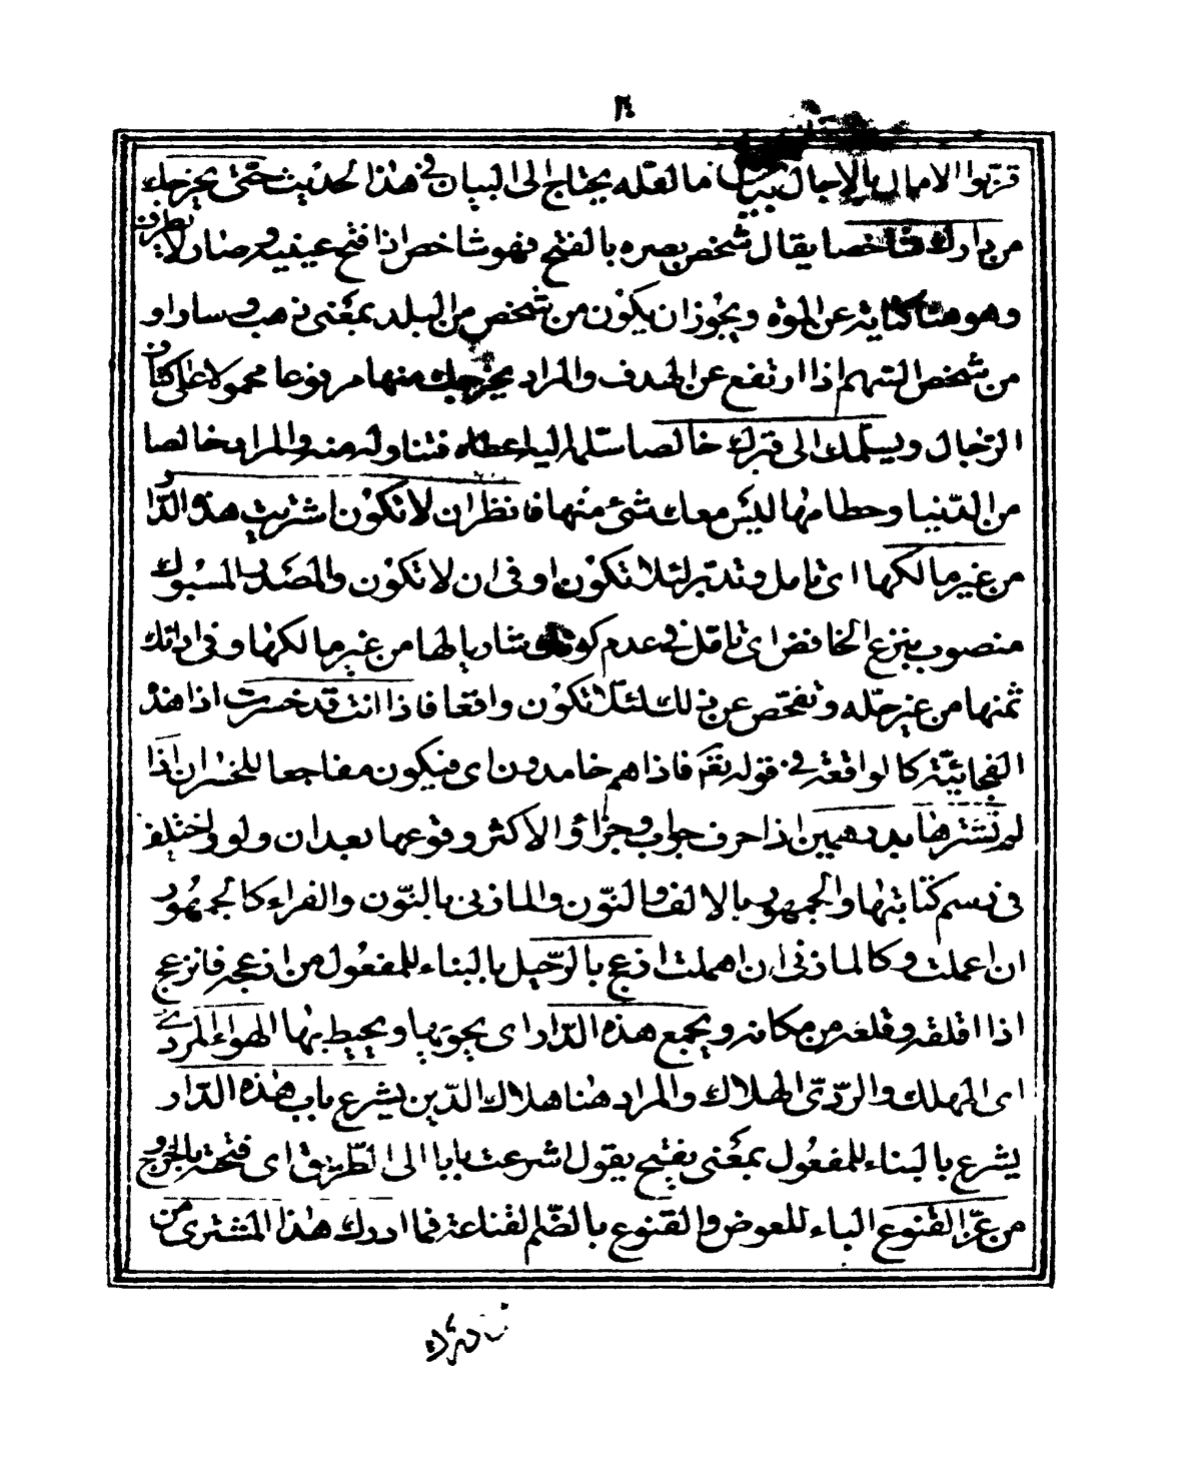 قربوا الآمال بالآجال بيان ما لعله يحتاج الى البيان فى هذا الحديث حتى يخرجك
من دارك شاخصا يقال شخص بصره بالفتح فهو شاخص اذا فتح عينيه وصار لا يطرف
وهو هنا كناية عن الموت ويجوز ان يكون من شخص من البلد بمعنى ذهب وسار او
من شخص السهم اذا ارتفع عن الهدف والمراد يخرجك منها مرفوعا محمولا على اكتاف
الرجال ويسلمك الى قبرك خالصا سلمه اليه اعطاه فتناوله منه والمراد خالصا
من الدنيا وحطامها ليس معك شئ منها فانظر ان لا تكون اشتريت هذه الدار
من غير مالكها اى تامل وتدبر لئلا تكون او فى ان لا تكون والمصدر المسبوك
منصوب بنزع الخافض اى تامل فى عدم كونك شاريا لها من غير مالكها وفى ادائك
ثمنها من غير حله وتفحص عن ذلك لئلا تكون واقعا فاذا انت قد خسرت اذا هذه
الفجائية كالواقعة فى قوله تقم فاذا هم خامدون اى فيكون مفاجعا للخسران اذا
لم تشترها بدرهمين اذا حرف جواب وجزاء والاكثر وقوعها بعد ان ولو واختلف
فى رسم كتابتها والجمهور بالالف والنون والمازنى بالنون والفراء كالجمهور
ان اعملت وكالمازنى ان اهملت ازعج بالرحيل بالبناء للمفعول من ازعجه فانزعج
اذا اقلقه وقلعه من مكانه ويجمع هذه الدار اى يحويها ويحيط بها الهواء المردى
اى المهلك والردى الهلاك والمراد هنا هلاك الدين يشرع باب هذه الدار
يشرع بالبناء للمفعول بمعنى يفتح يقول اشرعت بابا الى الطريق اى فتحته بالخروج
من عز القنوع الباء للعوض والقنوع بالضم القناعة فما ادرك هذا المشترى من